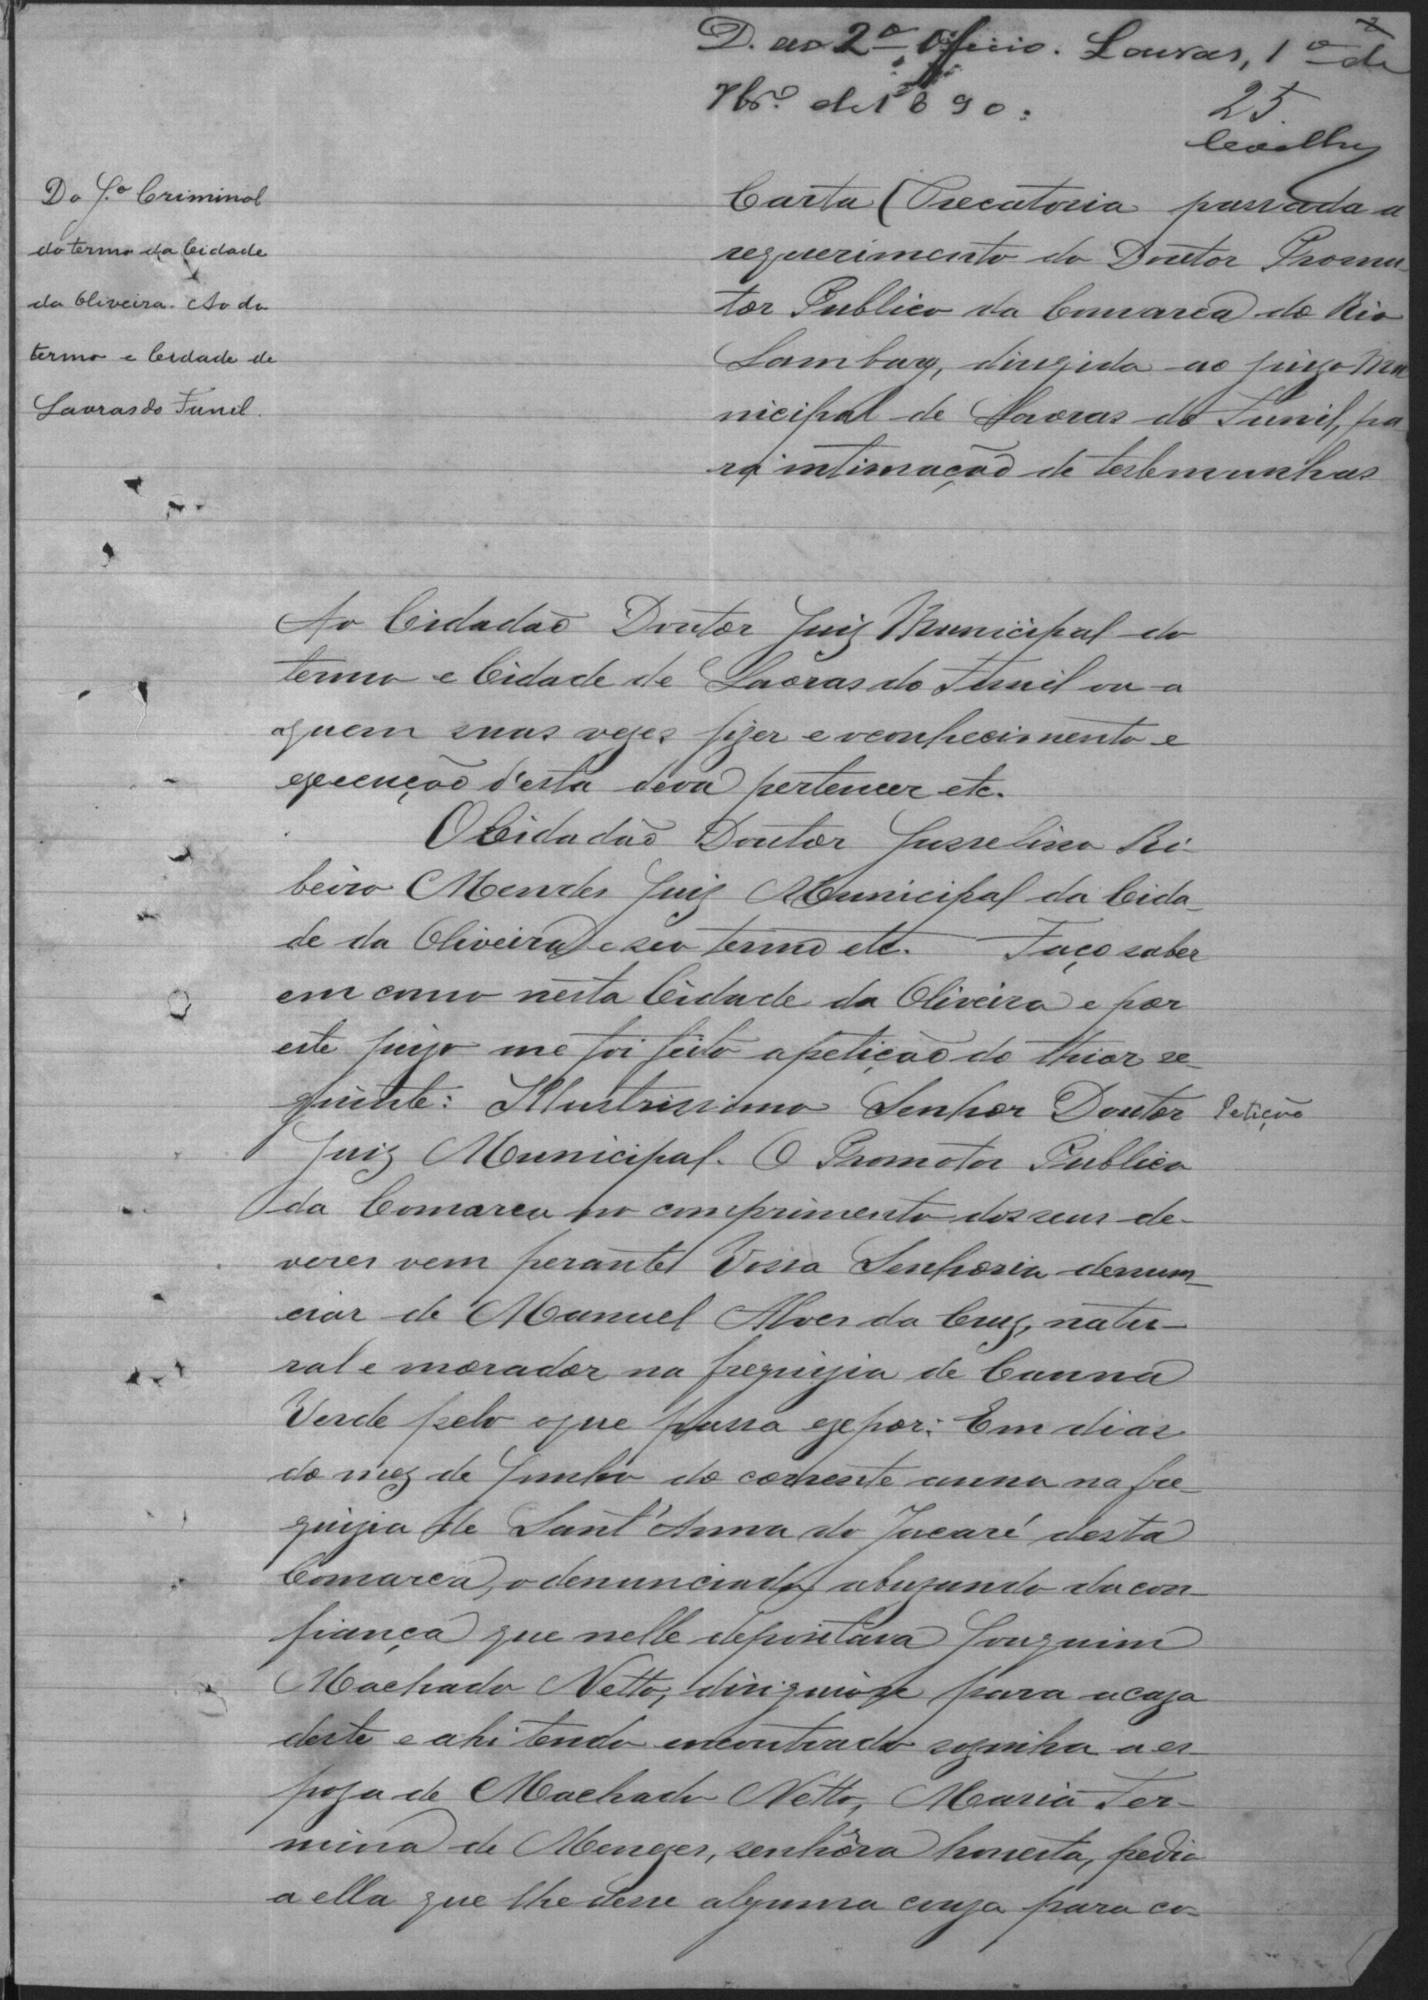 D. ao 2º Officio. Lavras, 1º de
2
7bro. de 1890.
25
Coelho
Do J.º Criminal
do termo da Cidade
da Oliveira. Ao do
termo e Cidade de
Lavras do Funil.
Carta Precatoria passada a
requerimento do Doutor Promu-
tor Publico da Comarca do Rio
Lambary, dirigida ao juizo Mu
nicipal de Lavras do Funil, pa
ra intimação de testemunhas
Ao Cidadão Doutor Juiz Municipal do
termo e Cidade de Lavras do Funil ou a
quem suas vezes fizer e o conhecimento e
execução d'esta deva pertencer etc.
O Cidadão Doutor Jusselino Ri-
beiro Mendes Juiz Municipal da Cida-
de da Oliveira e seo termo etc. Faço saber
em como nesta Cidade da Oliveira e por
este juizo me foi feito a petição do thior se-
guinte: Illustrissimo Senhor Doutor
Petição
Juiz Municipal. O Promotor Publico
da Comarca no comprimento dos seus de-
veres vem perante Vossa Senhoria denum-
ciar de Manuel Alves da Cruz, natu-
ral e morador na freguizia de Canna
Verde pelo o que passa expor: Em dias
do mez de Junho do corrente anno na fre-
guizia de Sant'Anna do Jacaré desta
Comarca, o denunciado, abuzando da con-
fiança que nelle depositava Jouquim
Machado Netto, diriguiose para a caza
deste e ahi tendo encontrado sozinha a es-
poza de Machado Netto, Maria Fer-
mina de Menezes, senhóra honesta, pedio
a ella que lhe desse alguma couza para co-